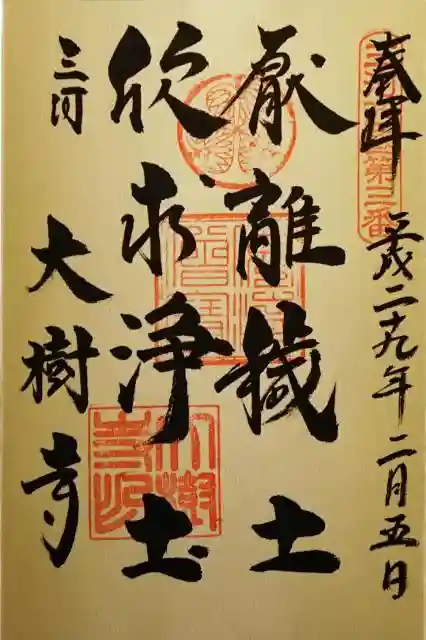 奉拝
平成二十九年二月五日
第三番
厭離穢土
欣求浄土
三河
大樹寺